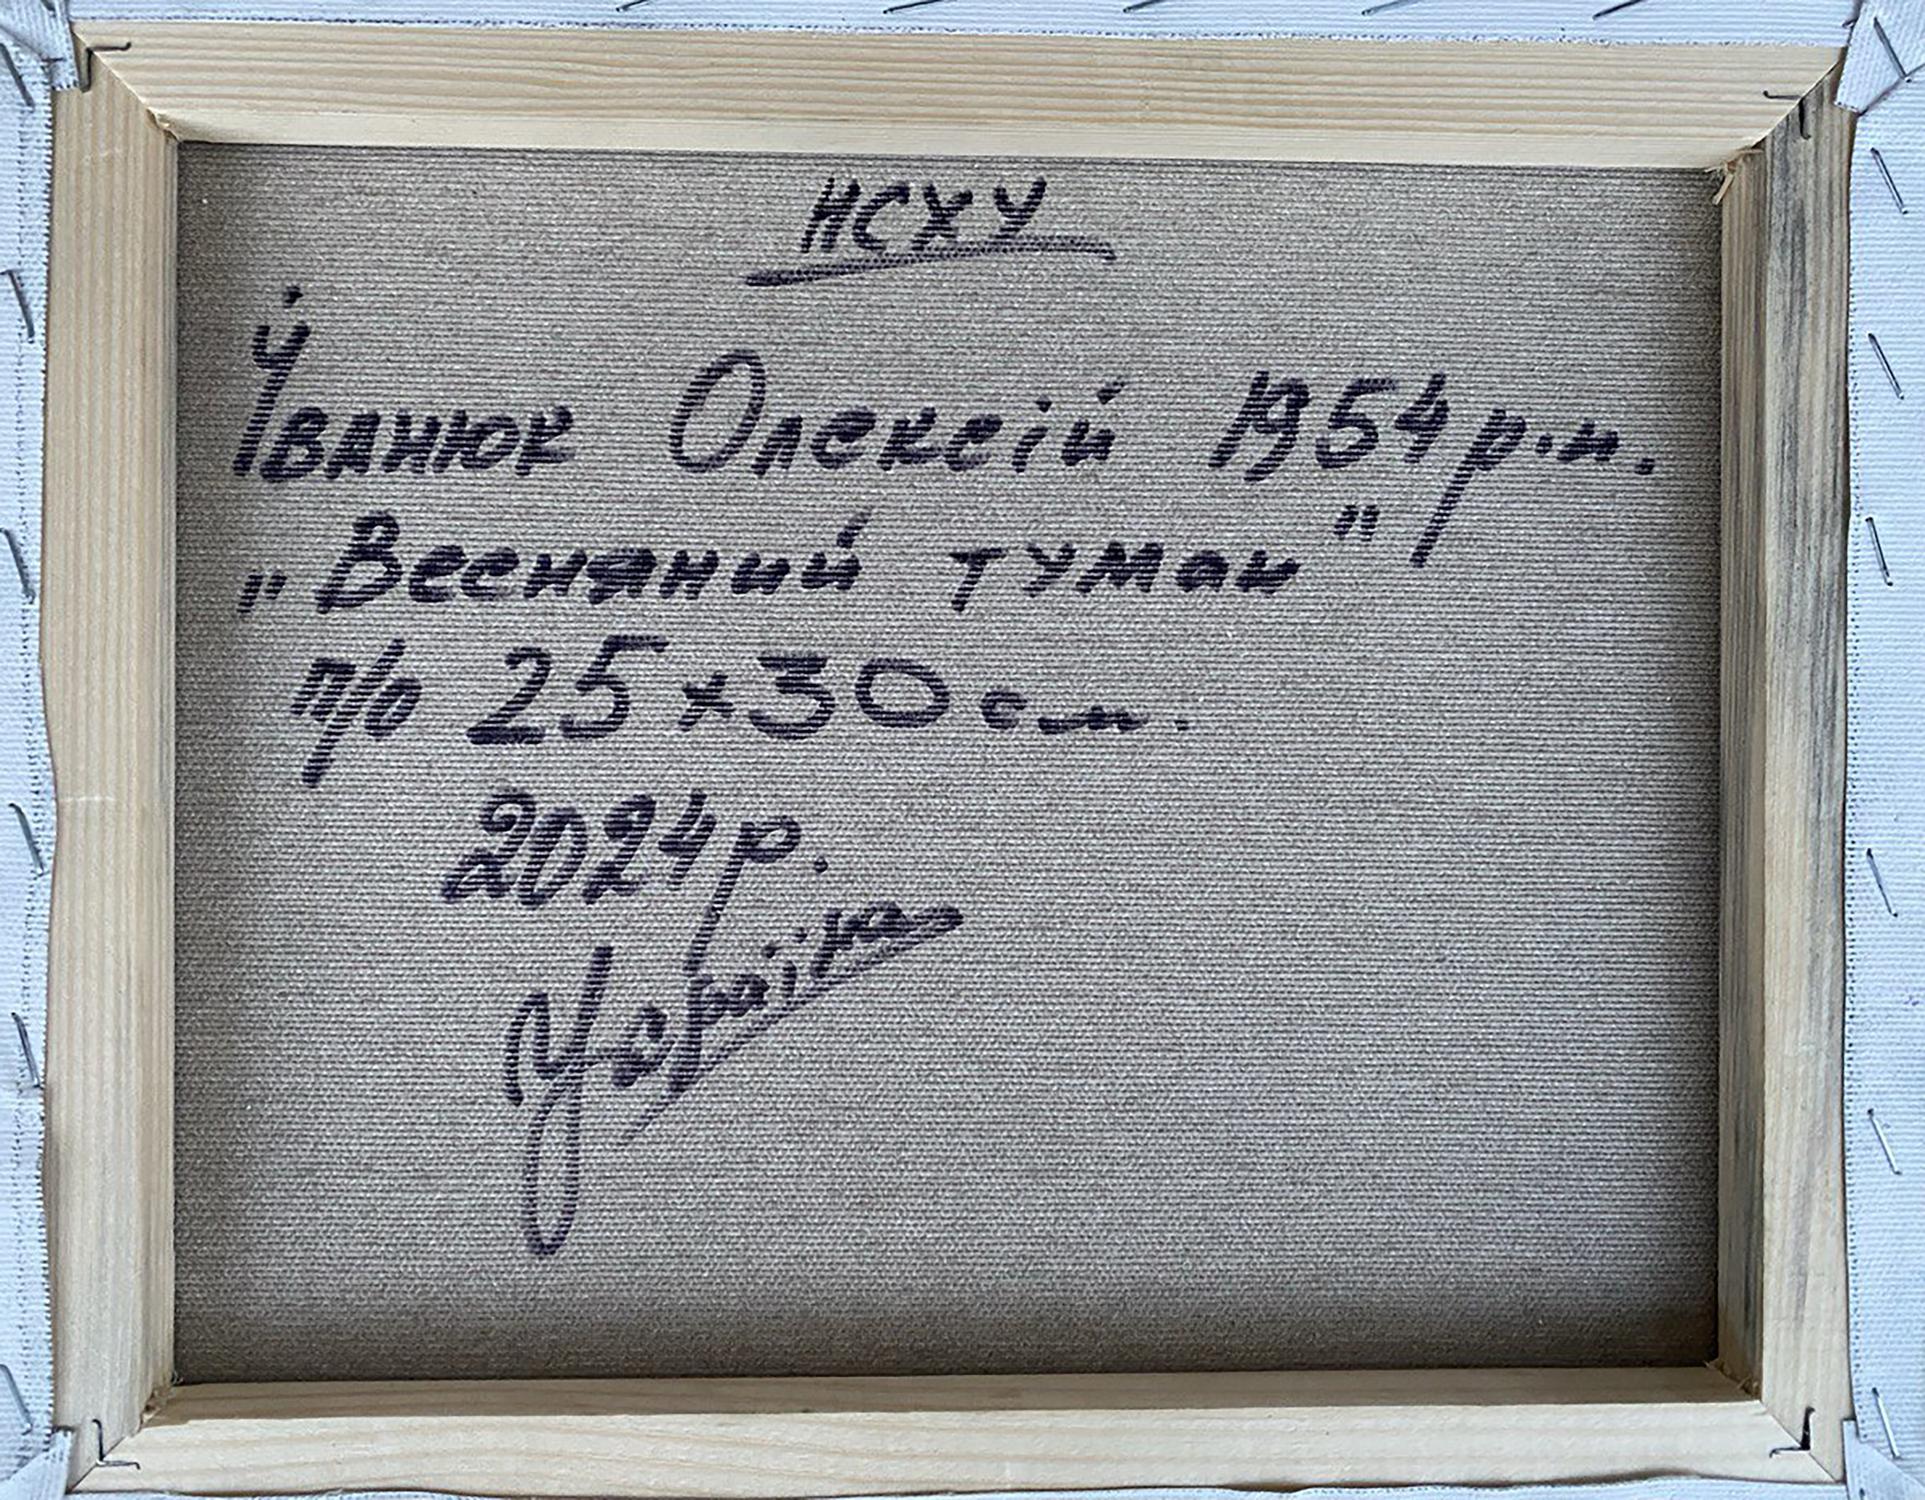 НСХУ
Іванюк Олексій 1954 р.н.
„Весняний туман"
п/о 25х30 см.
2024 р.
Україна